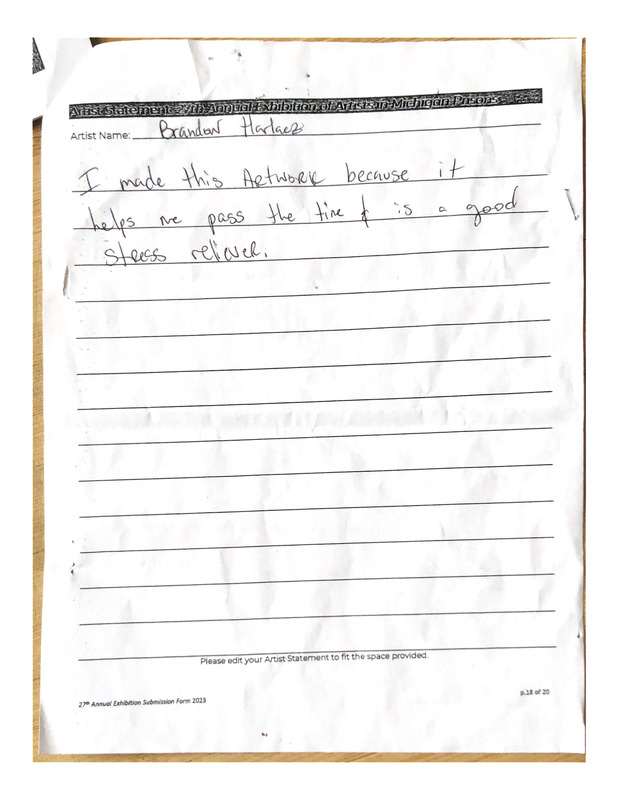 Artist Statement: 27th Annual Exhibition of Artists in Michigan Prisons
Artist Name: Brandon
I made this Artwork because it
helps me pass the time & is a good
stress reliever.
Please edit your Artist Statement to fit the space provided.
27th Annual Exhibition Submission Form 2023
p.18 of 20